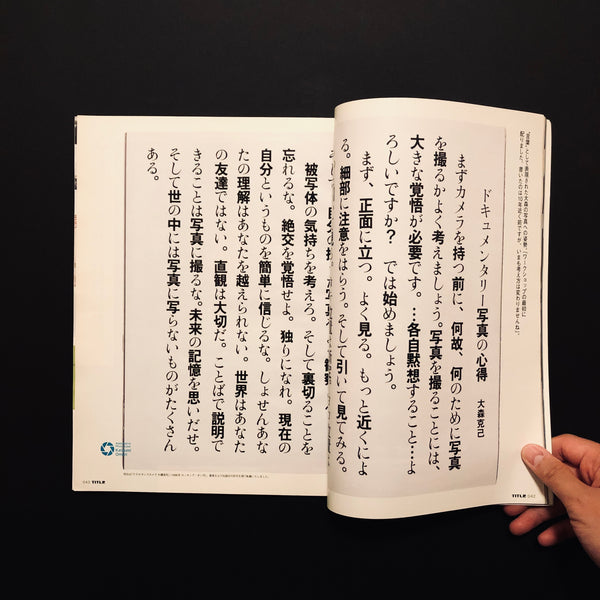 "言葉"として表現された大森の写真への姿勢。「ワークショップの最初に
配りました。書いたのは10年近く前ですが、いまも考え方は変わりませんね」。
ドキュメンタリー写真の心得
大森克己
まずカメラを持つ前に、何故、何のために写真
を撮るかよく考えましょう。写真を撮ることには、
大きな覚悟が必要です。…各自黙想すること…よ
ろしいですか? では始めましょう。
まず、正面に立つ。よく見る。もっと近くによ
る。細部に注意をはらう。そして引いて見てみる。
被写体の気持ちを考えろ。そして裏切ることを
忘れるな。絶交を覚悟せよ。独りになれ。現在の
自分というものを簡単に信じるな。しょせんあな
たの理解はあなたを越えられない。世界はあなた
の友達ではない。直観は大切だ。ことばで説明で
きることは写真に撮るな。未来の記憶を思いだせ。
そして世の中には写真に写らないものがたくさん
ある。
Katsumi
Omori
043 TITLE
TITLE 042